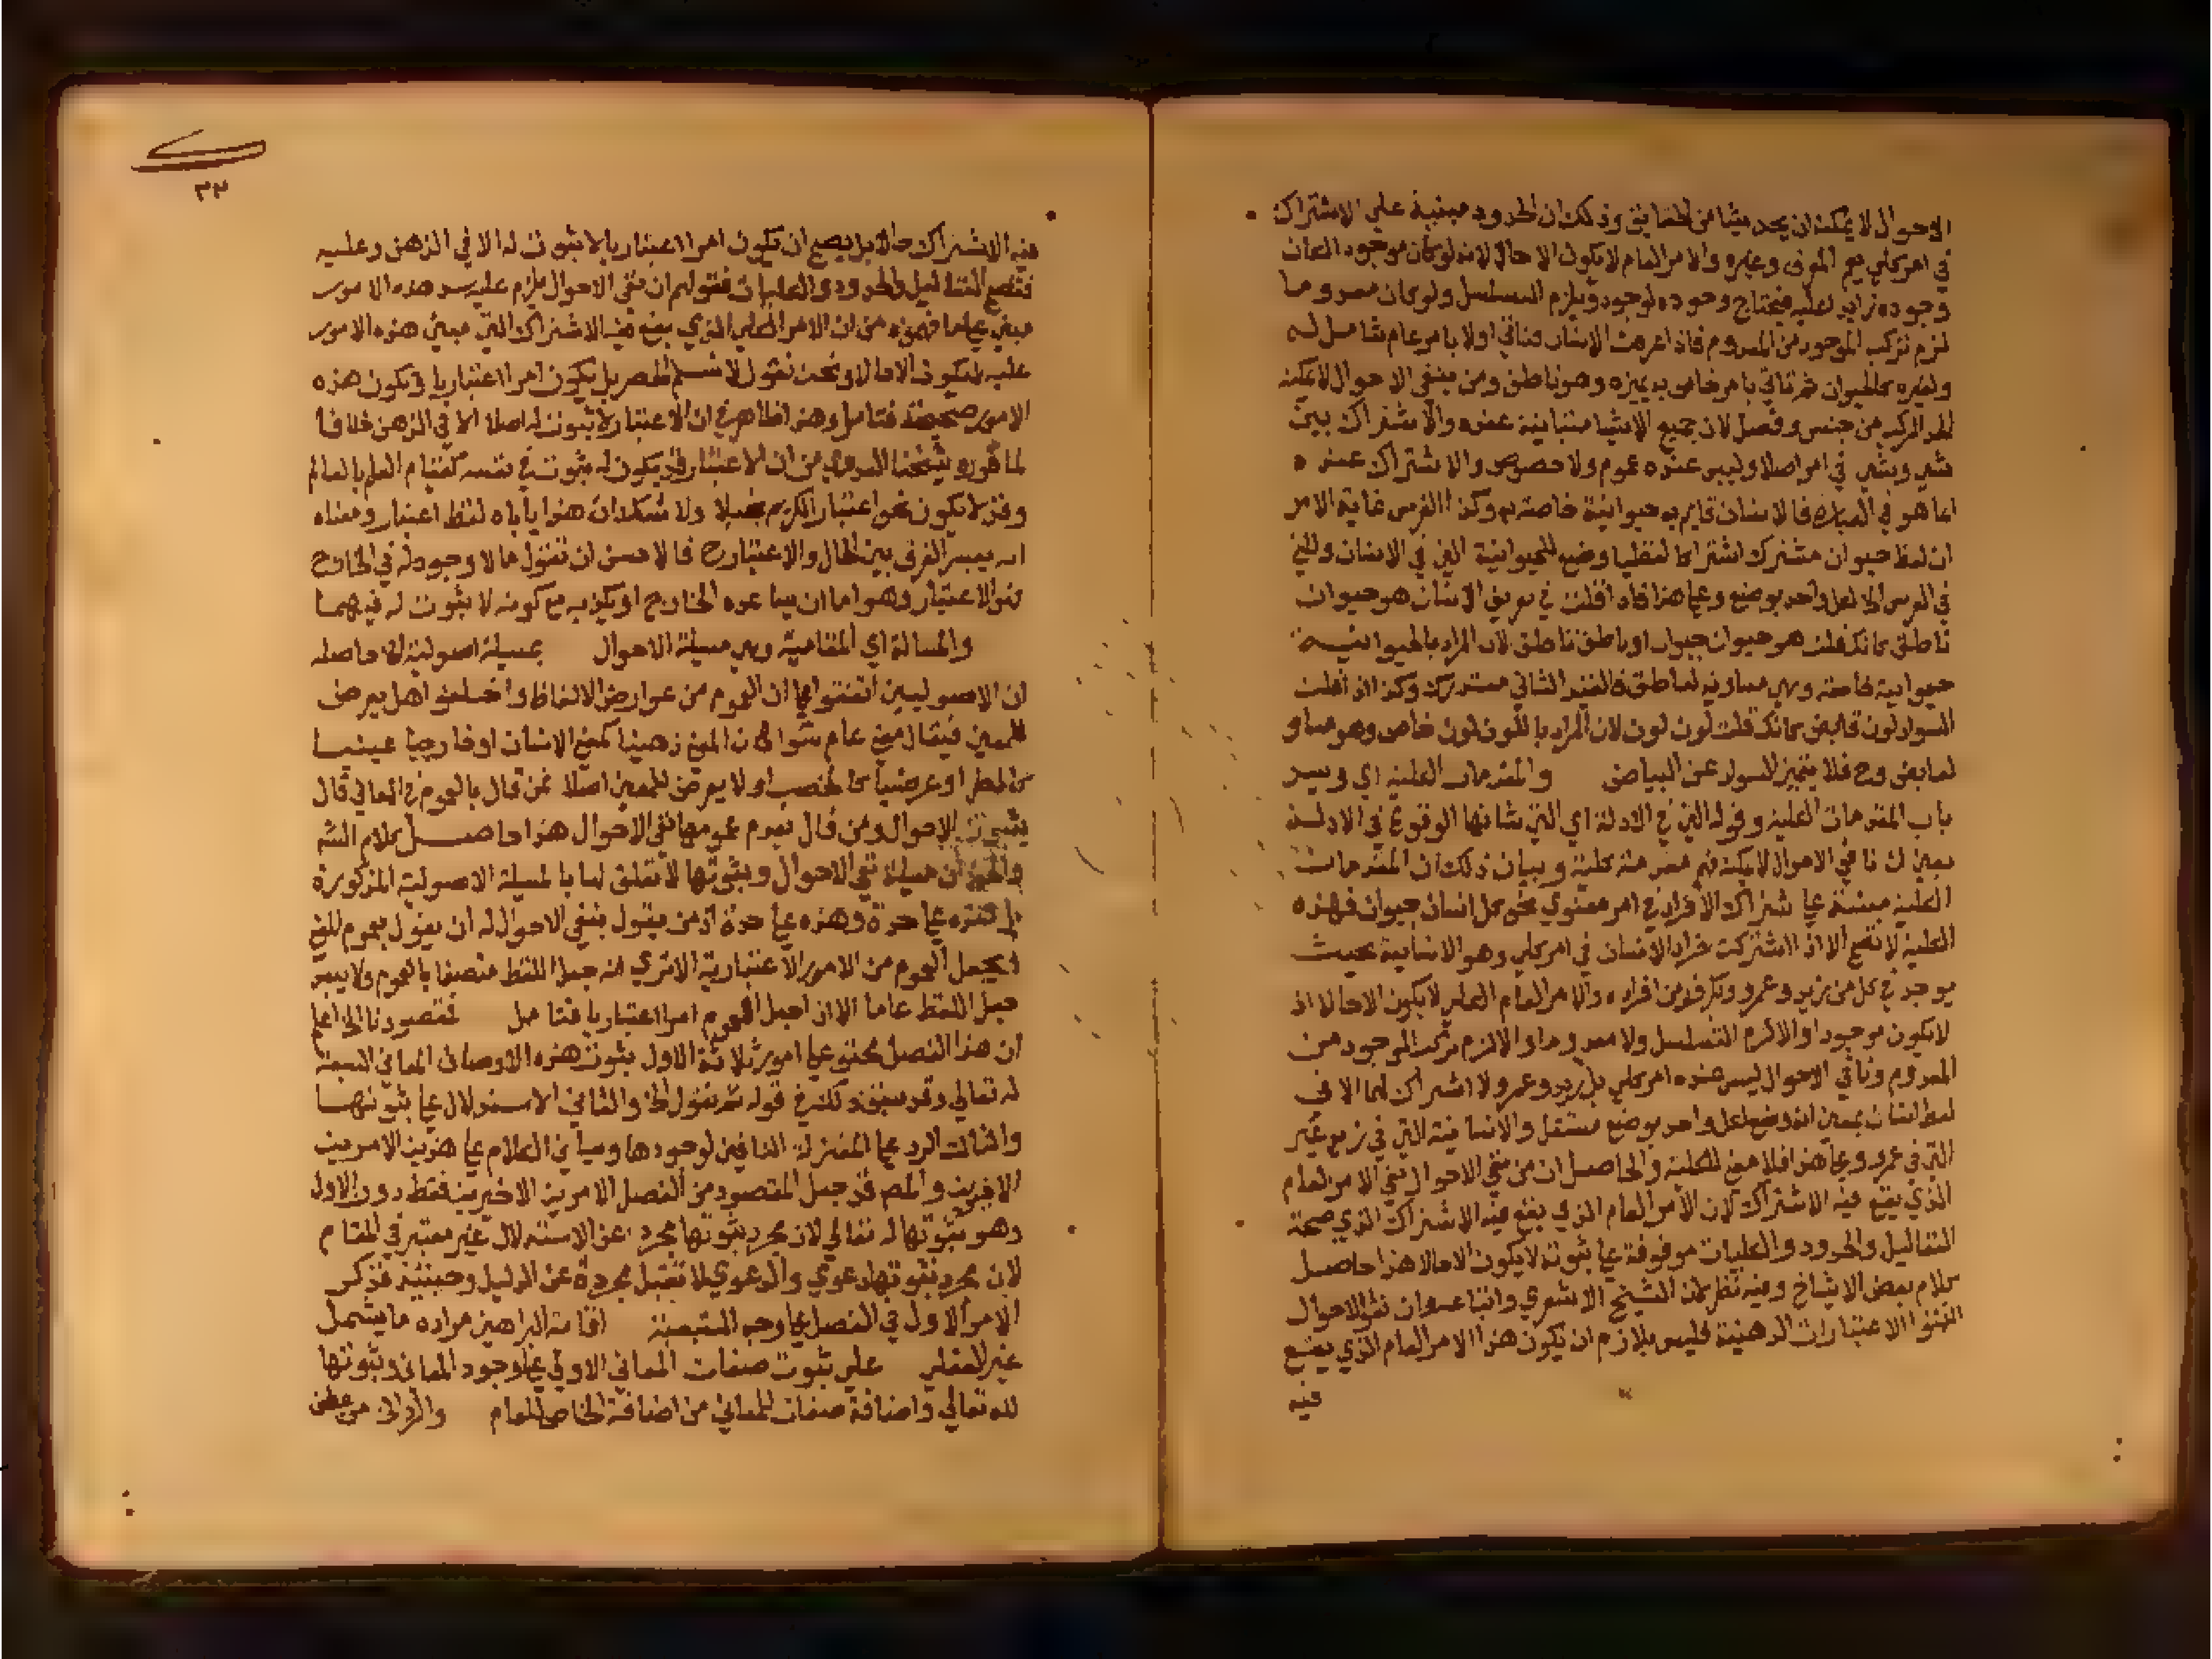 الاحوال لا يمكنه ان يحد شيا من الحقايق وذلك ان الحدود مبنية علي الاشتراك
في امر كلي يعم المعرف وغيره والامر العام لا يكون الا حالا لانه لو كان موجود الكان
وجوده زايد عليه فيحتاج وجوده لوجود ويلزم التسلسل ولو كان معدوما
لزم تركب الموجود من المعدوم فاذا عرفت الانسان فتاتي اولا بامر عام شامل له
ولغيره كالحيوان ثم تاتي بامر خاص به يميزه وهو ناطق ومن ينفي الاحوال لا يمكنه
الحد المركب من جنس وفصل لان جميع الاشيا متباينة عنده والاشتراك بين
شي وشي في امر اصلا وليس عنده عموم ولا خصوص والاشتراك عنده
انما هو في العبارة فالانسان قايم به حيوانية خاصة به وكذا الفرس غاية الامر
ان لفظ حيوان مشترك اشتراكا لفظيا وضع للحيوانية التي في الانسان وللتي
في الفرس الخ لكل واحد بوضع وعلي هذا فاذا قلت في تعريف الانسان هو حيوان
ناطق كانك قلت هو حيوان حيوان او ناطق ناطق لان المراد بالحيوانية
حيوانية خاصة وهي مساوية لناطق فالقيد الثاني مستدرك وكذا اذا قلت
السواد لون قابض كانك قلت لون لون لان المراد باللون لون خاص وهو مساو
لقابض وح فلا يتميز السواد عن البياض والمقدمات الكلية اي ويسد
باب المقدمات الكلية وقوله التي في الادلة اي التي شانها الوقوع في الادلة
بمعني ان نافي الاحوال لا يمكنه فهم مقدمة كلية وبيان ذلك ان المقدمات
الكلية مبنية علي اشتراك الافراد في امر معنوي نحو كل انسان حيوان فهذه
الكلية لا تصح الا اذا اشتركت افراد الانسان في امر كلي وهو الانسانية بحيث
يوجد في كل من زيد وعمرو وبكر فهو من افراده والامر العام الكلي لا يكون الا حالا اذ
لا يكون موجودا والا لزم التسلسل ولا معدوما والا لزم تركب الموجود من
المعدوم ونافي الاحوال ليس عنده امر كلي بل زيد وعمرو ولا اشتراك لهما الا في
لفظ انسان بمعني انه وضع لكل واحد بوضع مستقل والانسانية التي في زيد غير
التي في عمرو وعلي هذا فلا معني للكلية والحاصل ان من نفي الاحوال نفي الامر العام
الذي يقع فيه الاشتراك لان الامر العام الذي يقع فيه الاشتراك الذي صحة
التعاليل والحدود والكليات موقوفة علي ثبوته لا يكون الا حالا هذا حاصل
كلام بعض الاشياخ وفيه نظر لان الشيخ الاشعري واتباعه وان نفوا الاحوال
اثبتوا الاعتبارات الذهنية فليس بلازم ان يكون هذا الامر العام الذي يقع
فيه
٣٣
فيه الاشتراك حالا بل يصح ان يكون امرا اعتباريا لا ثبوت له الا في الذهن وعليه
فتصح التعاليل والحدود والكليات فقولهم ان نفي الاحوال يلزم عليه سد هذه الامور
مبني علي ما فهموه من ان الامر الكلي الذي يقع فيه الاشتراك التي مبني هذه الامور
عليه لا يكون الا حالا ونحن نقول لا نسلم الحصر بل يكون امرا اعتباريا وتكون هذه
الامور صحيحة فتامل وهذا ظاهر في ان الاعتبار لا ثبوت له اصلا الا في الذهن خلافا
لما قرره شيخنا العدوي من ان الاعتبار قد يكون له ثبوت في نفسه كقيام العلم بالعالم
وقد لا يكون نحو اعتبار الكريم بخيلا ولا شك ان هذا ياباه لفظ اعتبار ومعناه
انه يعسر الفرق بين الحال والاعتبار وح فالاحسن ان تقول ما لا وجود له في الخارج
هو الاعتبار وهو اما ان يساعده الخارج او يكذبه مع كونه لا ثبوت له فيهما
والمسالة اي المقامية وهي مسيلة الاحوال بمسيلة اصولية الخ حاصله
ان الاصوليين اتفقوا علي ان العموم من عوارض الالفاظ واختلفوا هل يعرض
للمعني فيقال معني عام سوا كان المعني ذهنيا كمعني الانسان او خارجيا عينيا
كالمطر او عرضيا كالخصب او لا يعرض للمعني اصلا فمن قال بالعموم في المعاني قال
بثبوت الاحوال ومن قال بعدم عمومها نفي الاحوال هذا حاصل كلام الشم
والحق ان مسيلة نفي الاحوال وثبوتها لا تعلق لها بالمسيلة الاصولية المذكورة
بل هذه علي حدة وهذه علي حدة اذ من يقول بنفي الاحوال له ان يقول بعموم المعني
ويجعل العموم من الامور الاعتبارية الا تري انه جعل اللفظ متصفا بالعموم ولا يصح
جعل اللفظ عاما الا ان اجعل العموم امرا اعتباريا فتامل فقصودنا الخ اعلم
ان هذا الفصل محتو علي امور ثلاثة الاول ثبوت هذه الاوصاف المعاني السبعة
له تعالي وقد سبق ذلك في قوله ثم نقول الخ والثاني الاستدلال علي ثبوتها
والثالث الرد علي المعتزلة النافين لوجودها وسياتي الكلام علي هذين الامرين
الاخيرين والمصم قد جعل المقصود من الفصل الامرين الاخيرين فقط دون الاول
وهو ثبوتها له تعالي لان مجرد ثبوتها مجرد عن الاستدلال غير معتبر في المقام
لان مجرد ثبوتها دعوي والدعوي لا تقبل مجردة عن الدليل وحينئذ فذكر
الامر الاول في الفصل علي وجه التبعية اقامة البراهين مراده ما يشمل
غير العقلي علي ثبوت صفات المعاني الاولي علي وجود المعاني وثبوتها
لله تعالي واضافة صفات للمعاني من اضافة الخاص للعام والرد الخ من عطف